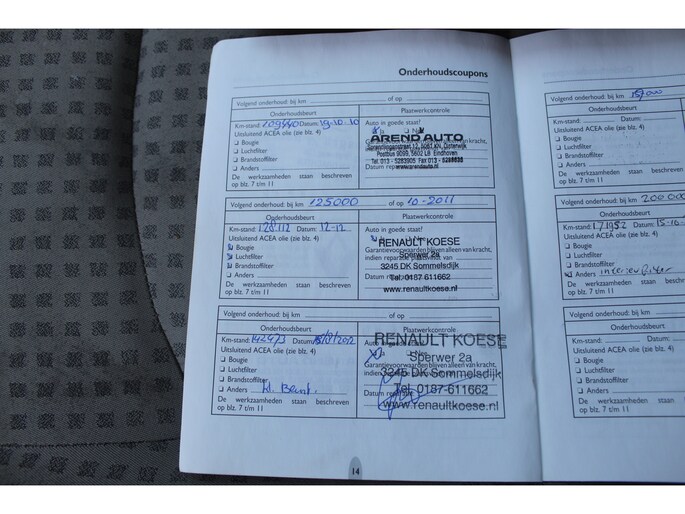 Onderhoudscoupons
Volgend onderhoud: bij km of op
Onderhoudsbeurt Plaatwerkcontrole
Km-stand: 109440 Datum: 19-10-10 Auto in goede staat?
Uitsluitend ACEA olie (zie blz. 4) Ja Nee
Bougie
Luchtfilter
Brandstoffilter
Anders
De werkzaamheden staan beschreven
op blz. 7 t/m 11
AREND AUTO
5602 LB Eindhoven
www.arendauto.nl
Volgend onderhoud: bij km 125000 of op 10-2011
Onderhoudsbeurt Plaatwerkcontrole
Km-stand: 128112 Datum: 12-12 Auto in goede staat?
Uitsluitend ACEA olie (zie blz. 4)
Bougie
Luchtfilter
Brandstoffilter
Anders
De werkzaamheden staan beschreven
op blz. 7 t/m 11
Garantievoorwaarden blijven alleen van kracht,
indien reparatie plaatsvindt
Datum reparatie
RENAULT KOESE
Sperwer 2a
3245 DK Sommelsdijk
Tel. 0187-611662
www.renaultkoese.nl
Volgend onderhoud: bij km of op
Onderhoudsbeurt Plaatwerkcontrole
Km-stand: 142473 Datum:
Uitsluitend ACEA olie (zie blz. 4) Ja Nee
Bougie
Luchtfilter
Brandstoffilter
Anders kl. Beurt.
De werkzaamheden staan beschreven
op blz. 7 t/m 11
RENAULT KOESE
Sperwer 2a
3245 DK Sommelsdijk
Tel. 0187-611662
www.renaultkoese.nl
14
Volgend onderhoud: bij km 157000
Onderhoudsbeurt
Km-stand: Datum:
Uitsluitend ACEA olie (zie blz. 4)
Bougie
Luchtfilter
Brandstoffilter
Anders
De werkzaamheden staan
op blz. 7 t/m 11
Volgend onderhoud: bij km 200000
Onderhoudsbeurt
Km-stand: 171952 Datum: 15-10-
Uitsluitend ACEA olie (zie blz. 4)
Bougie
Luchtfilter
Brandstoffilter
Anders interieurfilter
De werkzaamheden staan
op blz. 7 t/m 11
Volgend onderhoud: bij km
Onderhoudsbeurt
Km-stand: Datum:
Uitsluitend ACEA olie (zie blz. 4)
Bougie
Luchtfilter
Brandstoffilter
Anders
De werkzaamheden staan
op blz. 7 t/m 11